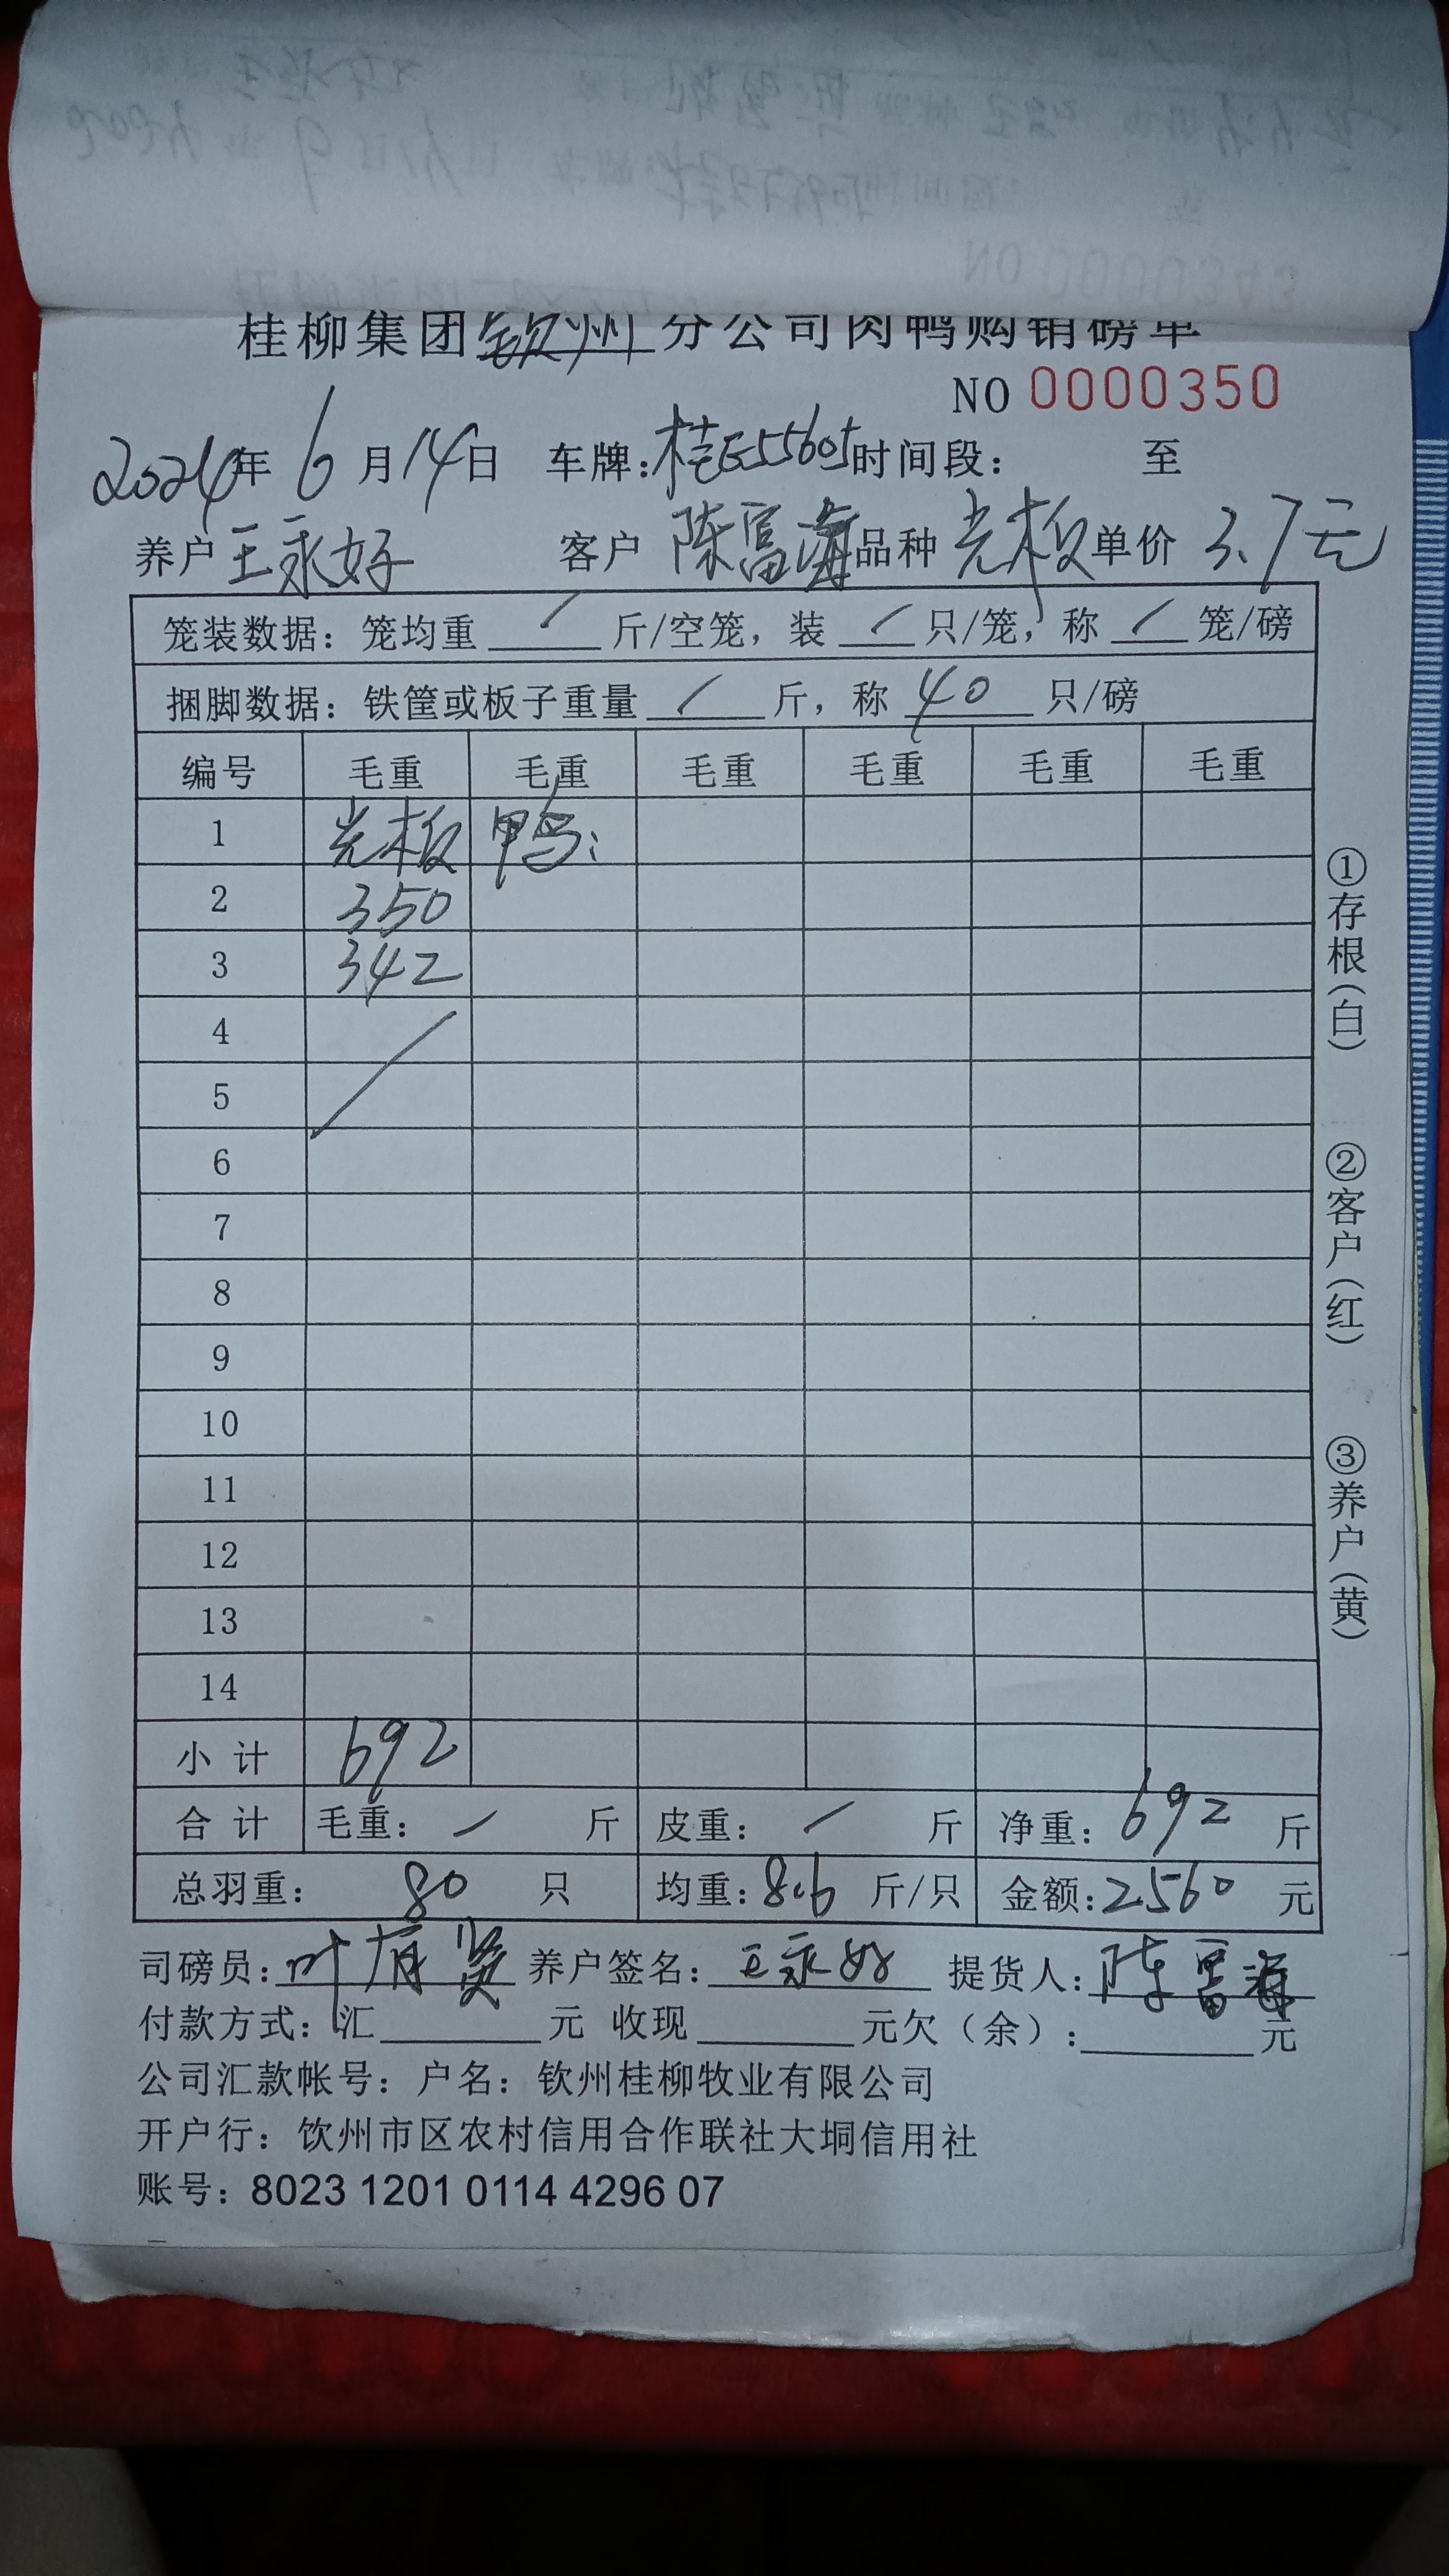 桂柳集团钦州分公司肉鸭购销磅单
NO 0000350
2024年 6月14日 车牌:桂E55605时间段: 至
养户 王永好 客户 陈富海 品种 光板 单价 3.7元
笼装数据: 笼均重 / 斤/空笼, 装 / 只/笼, 称 / 笼/磅
捆脚数据: 铁筐或板子重量 / 斤, 称 40 只/磅
编号 毛重 毛重 毛重 毛重 毛重 毛重
1 光板 鸭:
2 350
3 342
4
5
6
7
8
9
10
11
12
13
14
小 计 692
合 计 毛重: / 斤 皮重: / 斤 净重: 692 斤
总羽重: 80 只 均重: 8.6 斤/只 金额: 2560 元
司磅员: 叶有贤 养户签名: 王永好 提货人: 陈富海
付款方式: 汇 元 收现 元欠(余): 元
公司汇款帐号: 户名: 钦州桂柳牧业有限公司
开户行: 饮州市区农村信用合作联社大垌信用社
账号: 8023 1201 0114 4296 07
①存根(白)
②客户(红)
③养户(黄)